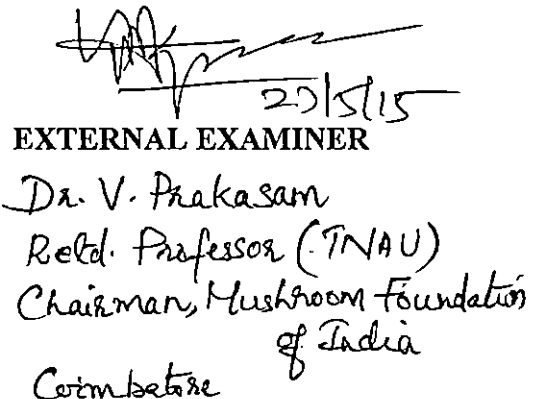 27/5/15
EXTERNAL EXAMINER
Dr. V. Prakasam
Retd. Professor (TNAU)
Chairman, Mushroom Foundation
of India
Coimbatore